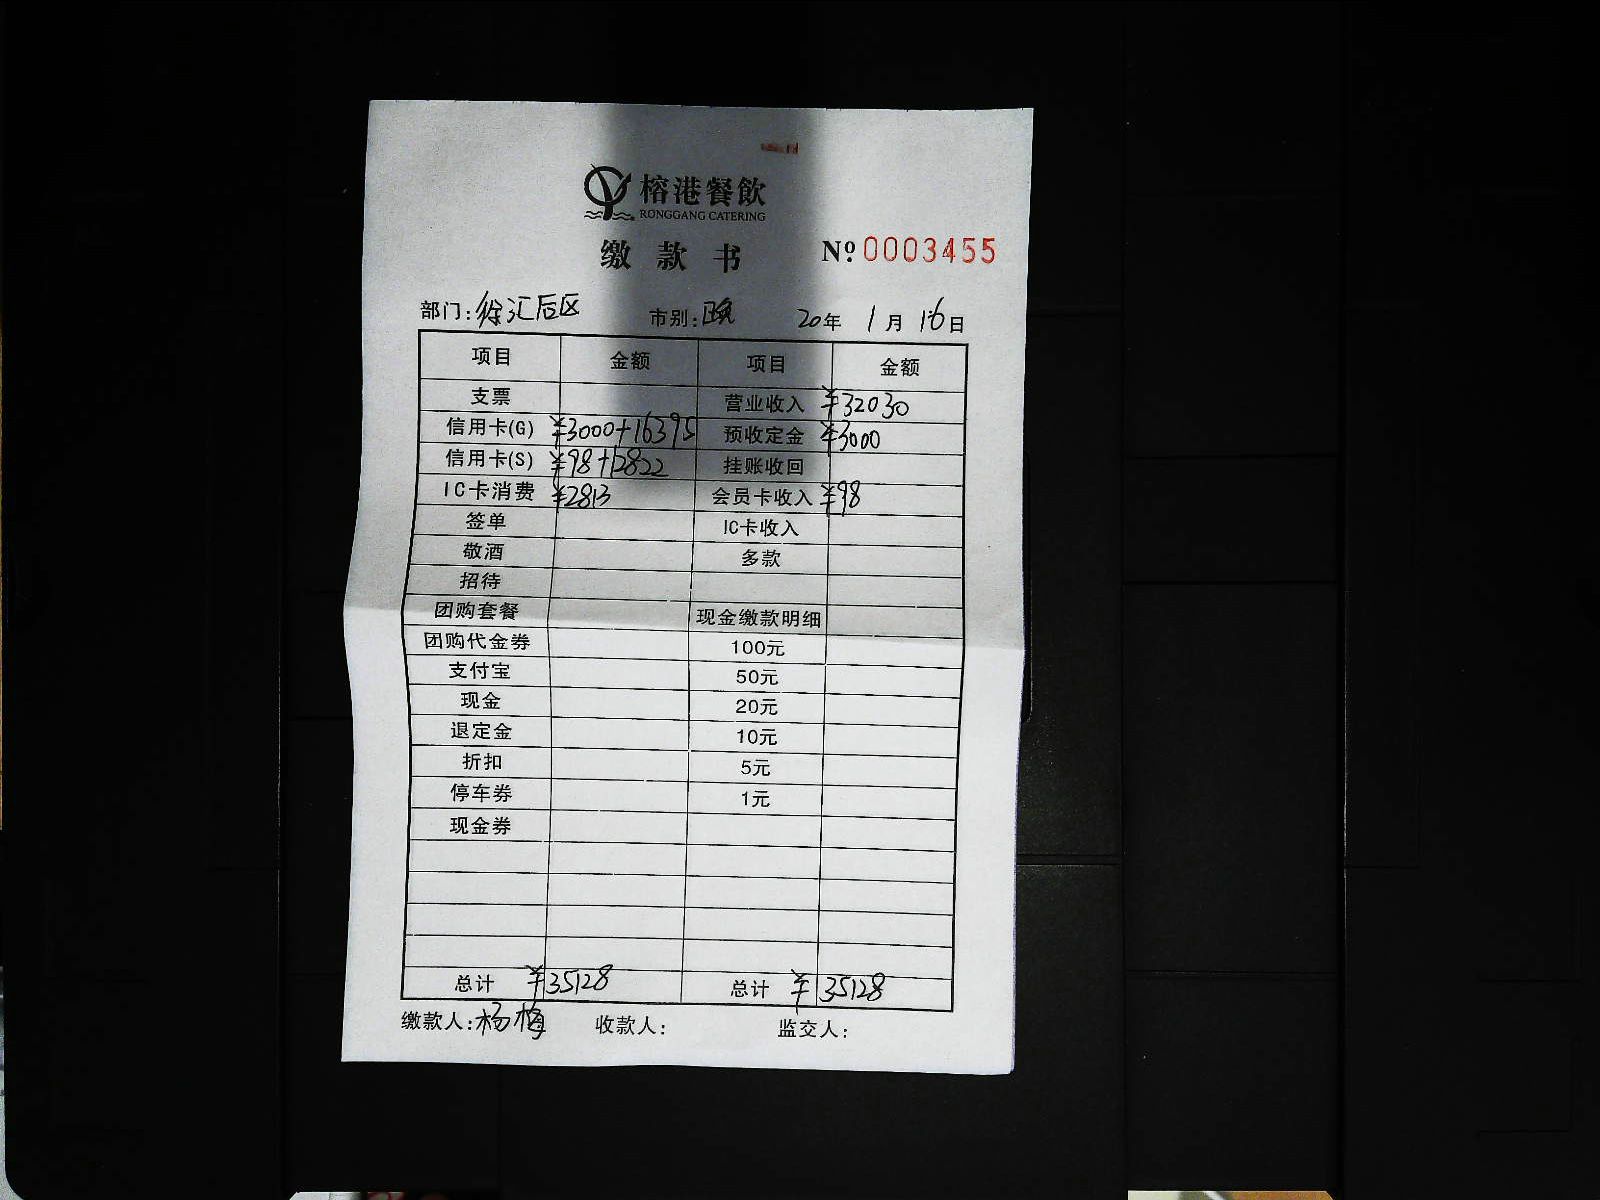 榕港餐飲
RONGGANG CATERING
缴款书 №0003455
部门:徐汇后区 市别:晚 20年 1月 16日
项目 金额 项目 金额
支票 营业收入 ¥32030
信用卡(G) ¥3000+16395 预收定金 ¥3000
信用卡(S) ¥98+12822 挂账收回
IC卡消费 ¥2813 会员卡收入 ¥98
签单 IC卡收入
敬酒 多款
招待
团购套餐 现金缴款明细
团购代金券 100元
支付宝 50元
现金 20元
退定金 10元
折扣 5元
停车券 1元
现金券
总计 ¥35128 总计 ¥35128
缴款人:杨梅 收款人: 监交人: